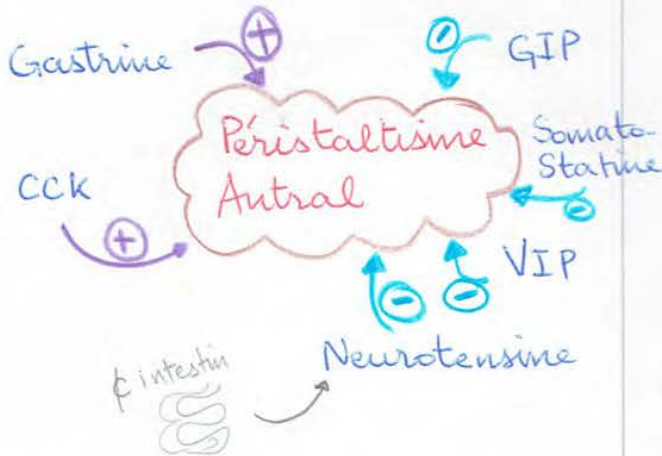 Gastrine
+
-
GIP
Péristaltisme
Antral
Somato-
Statine
-
CCK
+
VIP
-
-
Neurotensine
¢ intestin